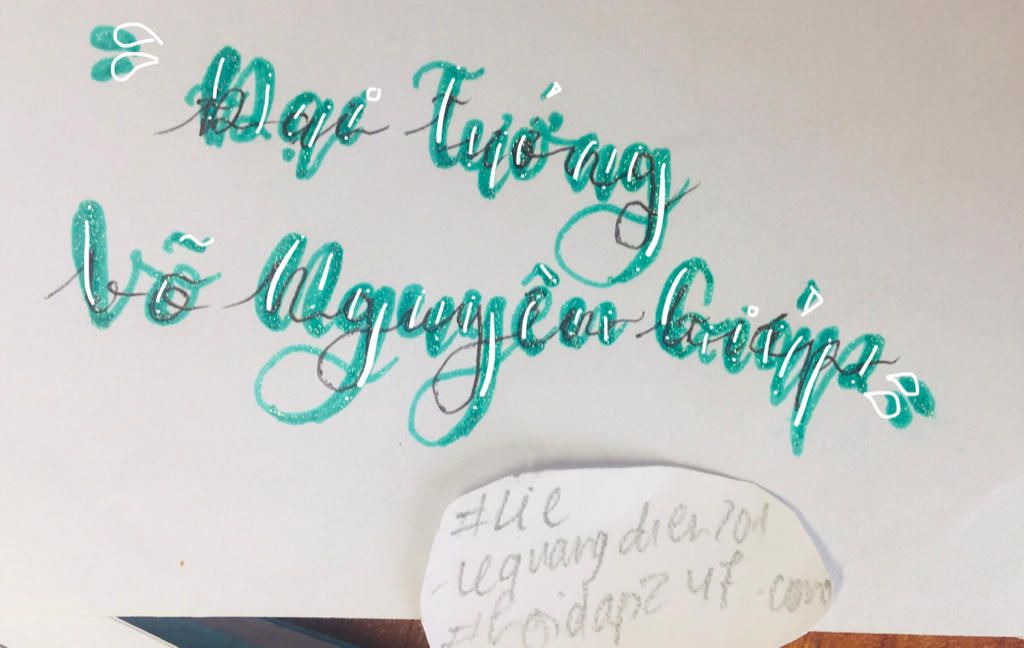 Đại Tướng
Võ Nguyên Giáp
#Lie
#hoidap247.com